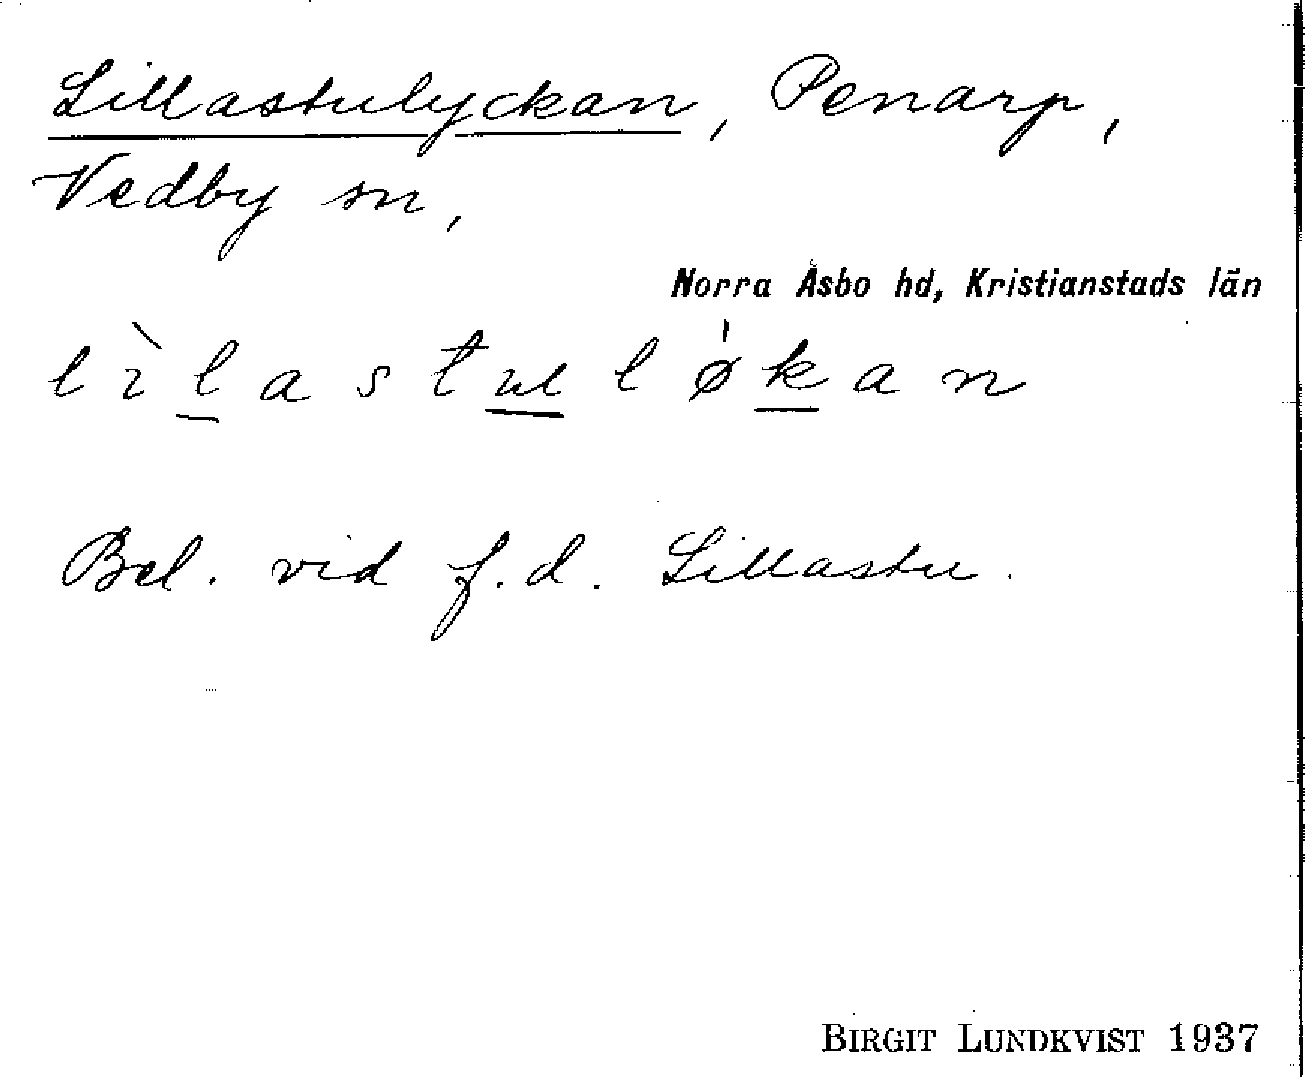 Lillastulyckan, Penarp,
Vedby sn,
Norra Åsbo hd, Kristianstads län
lìl̲astu̲lø̍k̲an
Bel. vid f.d. Lillastu.
BIRGIT LUNDKVIST 1937